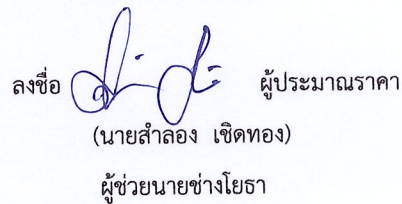 ลงชื่อ ผู้ประมาณราคา
(นายสำลอง เชิดทอง)
ผู้ช่วยนายช่างโยธา